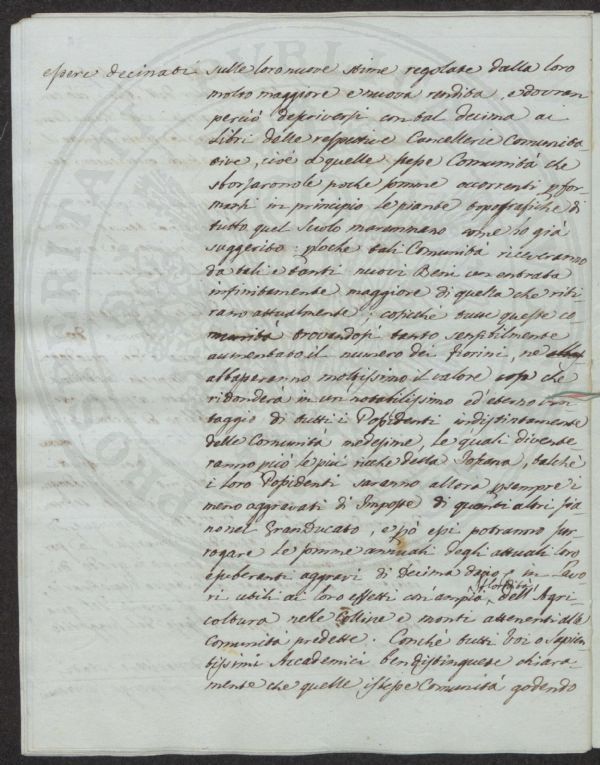 essere decimati sulle loro nuove stime regolate dalla loro
molto maggiore e nuova rendita, e dovran
perciò descriversi con tal decima ai
Libri delle respettive Cancellerie Comunita
tive, cioè a quelle stesse Comunità che
sborsarono le poche somme occorrenti p for-
marsi in principio le piante topografiche di
tutto quel Suolo maremmano come io già
suggerito: poche tali Comunità riceveranno
da tali e tanti nuovi Beni un entrata
infinitamente maggiore di quella che riti
rano attualmente; cosicchè tutte queste co-
munità trovandosi tanto sensibilmente
aumentato il numero dei fiorini, ne
abbasseranno moltissimo il valore che
ridonderà in un notabilissimo ed eterno van
taggio di tutti i Possidenti indistintamente
delle Comunità medesime, le quali divente
ranno più le più ricche della Toscana, talchè
i loro Possidenti saranno allora p sempre i
meno aggravati di Imposte di quanti altri sia
no nel GranDucato, e p ciò essi potranno sur-
rogare le somme annuali degli attuali loro
esuberanti aggravi di Decima dazio, in Lavo
ri utili ai loro effetti con ampia floridità dell'Agri-
coltura nelle Colline e monti attenenti alle
Comunità predette. Conchè tutti Voi o Sapien
tissimi Accademici ben distinguete chiara-
mente che quelle istesse Comunità godendo
PROSPERITATI PUBLICAE